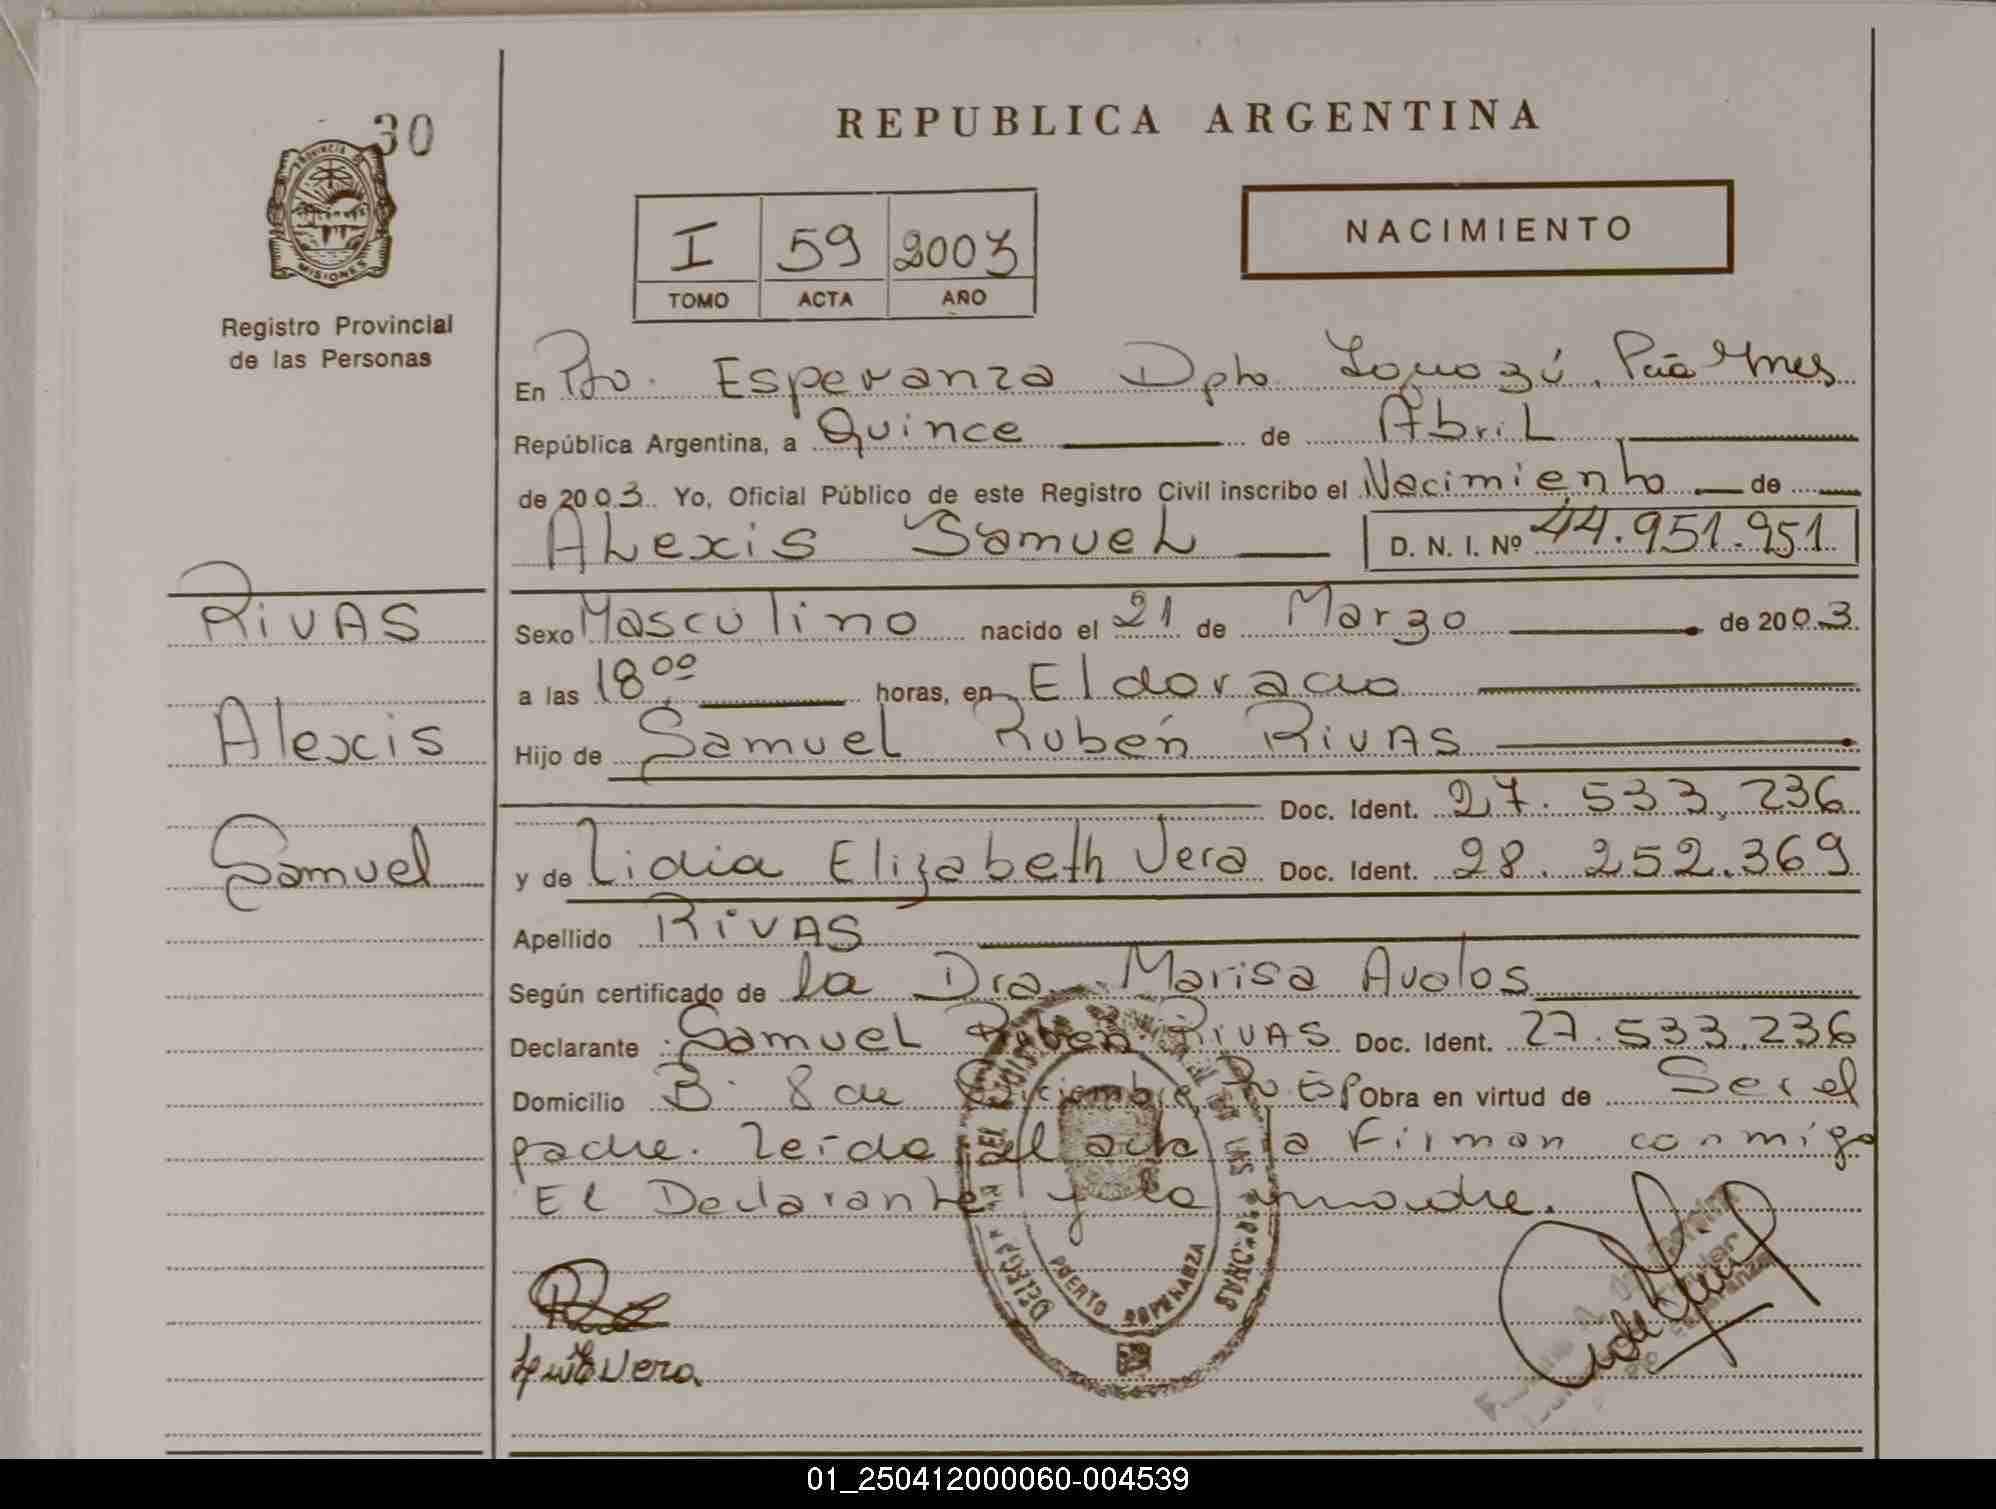 30
PROVINCIA DE
MISIONES
Registro Provincial
de las Personas
REPUBLICA ARGENTINA
I 59 2003
TOMO ACTA AÑO
NACIMIENTO
En Pto. Esperanza Dpto. Iguazú, Pcia Mnes
República Argentina, a Quince de Abril
de 2003. Yo, Oficial Público de este Registro Civil inscribo el Nacimiento de
Alexis Samuel D. N. I. Nº 44.951.951
RIVAS
Sexo Masculino nacido el 21 de Marzo de 2003
a las 18⁰⁰ horas, en Eldorado
Alexis
Hijo de Samuel Rubén RIVAS
Doc. Ident. 27.533.236
Samuel
y de Lidia Elizabeth Vera Doc. Ident. 28.252.369
Apellido RIVAS
Según certificado de la Dra. Marisa Avalos
Declarante Samuel Rubén RIVAS Doc. Ident. 27.533.236
Domicilio B. 8 de Diciembre, Pto Esp Obra en virtud de Ser el
padre. Leída el acta la Firman conmigo
El Declarante y la madre.
PUERTO ESPERANZA
Vera
01_250412000060-004539